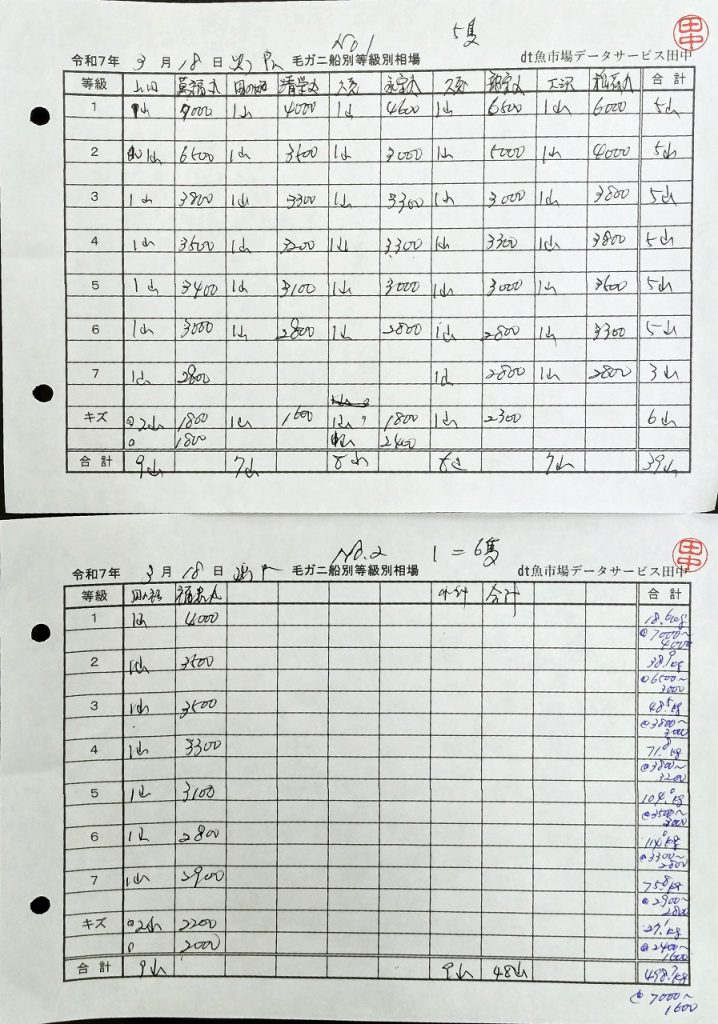 No 1 5隻
令和7年 3月18日 毛ガニ船別等級別相場 dt魚市場データサービス田中
田中
等級 合計
1 1山 7000 1山 4000 1山 4600 1山 6500 1山 6000 5山
2 1山 6500 1山 3500 1山 3000 1山 5000 1山 4000 5山
3 1山 3800 1山 3300 1山 3300 1山 3000 1山 3800 5山
4 1山 3500 1山 3200 1山 3300 1山 3300 1山 3800 5山
5 1山 3400 1山 3100 1山 3000 1山 3000 1山 3500 5山
6 1山 3000 1山 2800 1山 2800 1山 2800 1山 3300 5山
7 1山 2800 1山 2800 1山 2800 3山
キズ 2山 1800 1山 1600 1山 1800 1山 2300 6山
1800 2400
合計 9山 7山 8山 8山 7山 39山
No.2 1=6隻
令和7年 3月18日 毛ガニ船別等級別相場 dt魚市場データサービス田中
田中
等級 合計 合計
1 1山 4000 18.6kg
@7000~
4000
2 1山 3500 38.9kg
@6500~
3000
3 1山 3500 48.5kg
@3800~
3000
4 1山 3300 71.8kg
@3800~
3200
5 1山 3100 104.0kg
@3500~
3000
6 1山 2800 114.0kg
@3300~
2800
7 1山 2900 75.8kg
@2900~
2800
キズ 2山 2200 27.1kg
2000 @2400~
1600
合計 9山 9山 48山 498.7kg
@7000~
1600